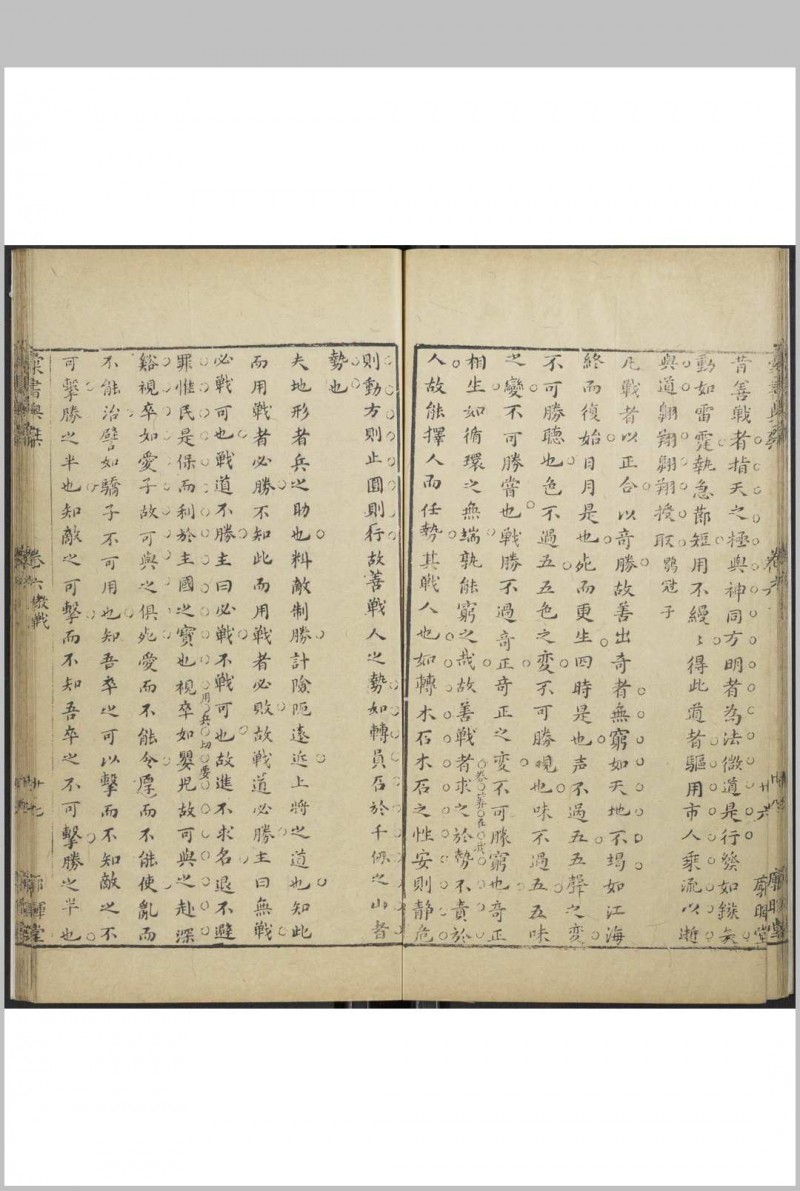 昔善戰者指天之極與神同方明者為法微道是行發如鏃矢
動如雷霆執急節短用不縵縵得此道者驅用市人乘流以逝
與道翱翔翱翔授取 鶡冠子
凡戰者以正合以奇勝故善出奇者無窮如天地不竭如江海
終而復始日月是也死而更生四時是也声不過五五聲之变
不可勝聽也色不過五五色之变不可勝覩也味不過五五味
之變不可勝嘗也戰勝不過奇正奇正之变不可勝窮也奇正
相生如循環之無端孰能窮之哉故善戰者求之於勢不責於
人故能擇人而任勢其戰人也如轉木石木石之性安則静危
則動方則止圓則行故善戰人之勢如轉員石於千仞之山者
勢也
夫地形者兵之助也料敵制勝計險阨遠近上將之道也知此
而用戰者必勝不知此而用戰者必敗故戰道必勝主曰無戰
必戰可也戰道不勝主曰必戰不戰可也故進不求名退不避
罪惟民是保而利於主國之寶也視卒如嬰児故可與之赴深
用兵切要
谿視卒如愛子故可與之俱死愛而不能令厚而不能使亂而
不能治譬如驕子不可用也知吾卒之可以擊而不知敵之不
可擊勝之半也知敵之可擊而不知吾卒之不可擊勝之半也
卷六
徵戰
廿七